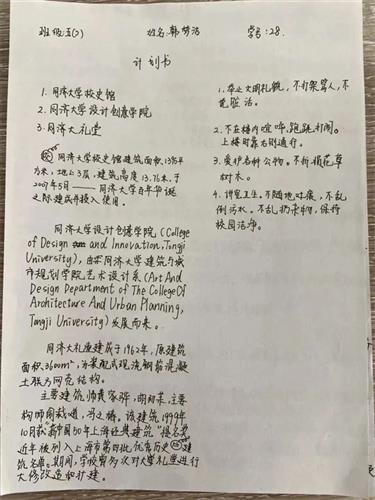 班级:五(2) 姓名:韩梦洁 学号:28.
计划书
1. 同济大学校史馆
2. 同济大学设计创意学院
3. 同济大礼堂
同济大学校史馆建筑面积1396平方
米,地上3层,建筑高度13.76米,于
2007年5月——同济大学百年华诞
之际建成并投入使用。
同济大学设计创意学院(College
of Design and Innovation,Tongji
University),由同济大学建筑与城
市规划学院艺术设计系(Art And
Design Department of The College Of
Architecture And Urban Planning,
Tongji University)发展而来。
同济大礼堂建成于1962年,原建筑
面积3600m²,为装配式现浇钢筋混凝
土联方网壳结构。
主要建筑师黄家骅,胡纫茉,主要
构师俞载道,冯之椿。该建筑1999年
10月获"新中国50年上海经典建筑"提名奖
近年被列入上海市第四批优秀历史建
筑名单。期间,学校曾多次对大礼堂进行
大修改造和扩建。
1. 举止文明礼貌,不打架骂人,不
说脏话。
2. 不在楼内喧哗,跑跳打闹。
上楼时靠右侧通行。
3. 爱护各种公物。不折损花草
树木。
4. 讲究卫生。不随地吐痰,不乱
倒污水。不乱扔杂物,保持
校园洁净。